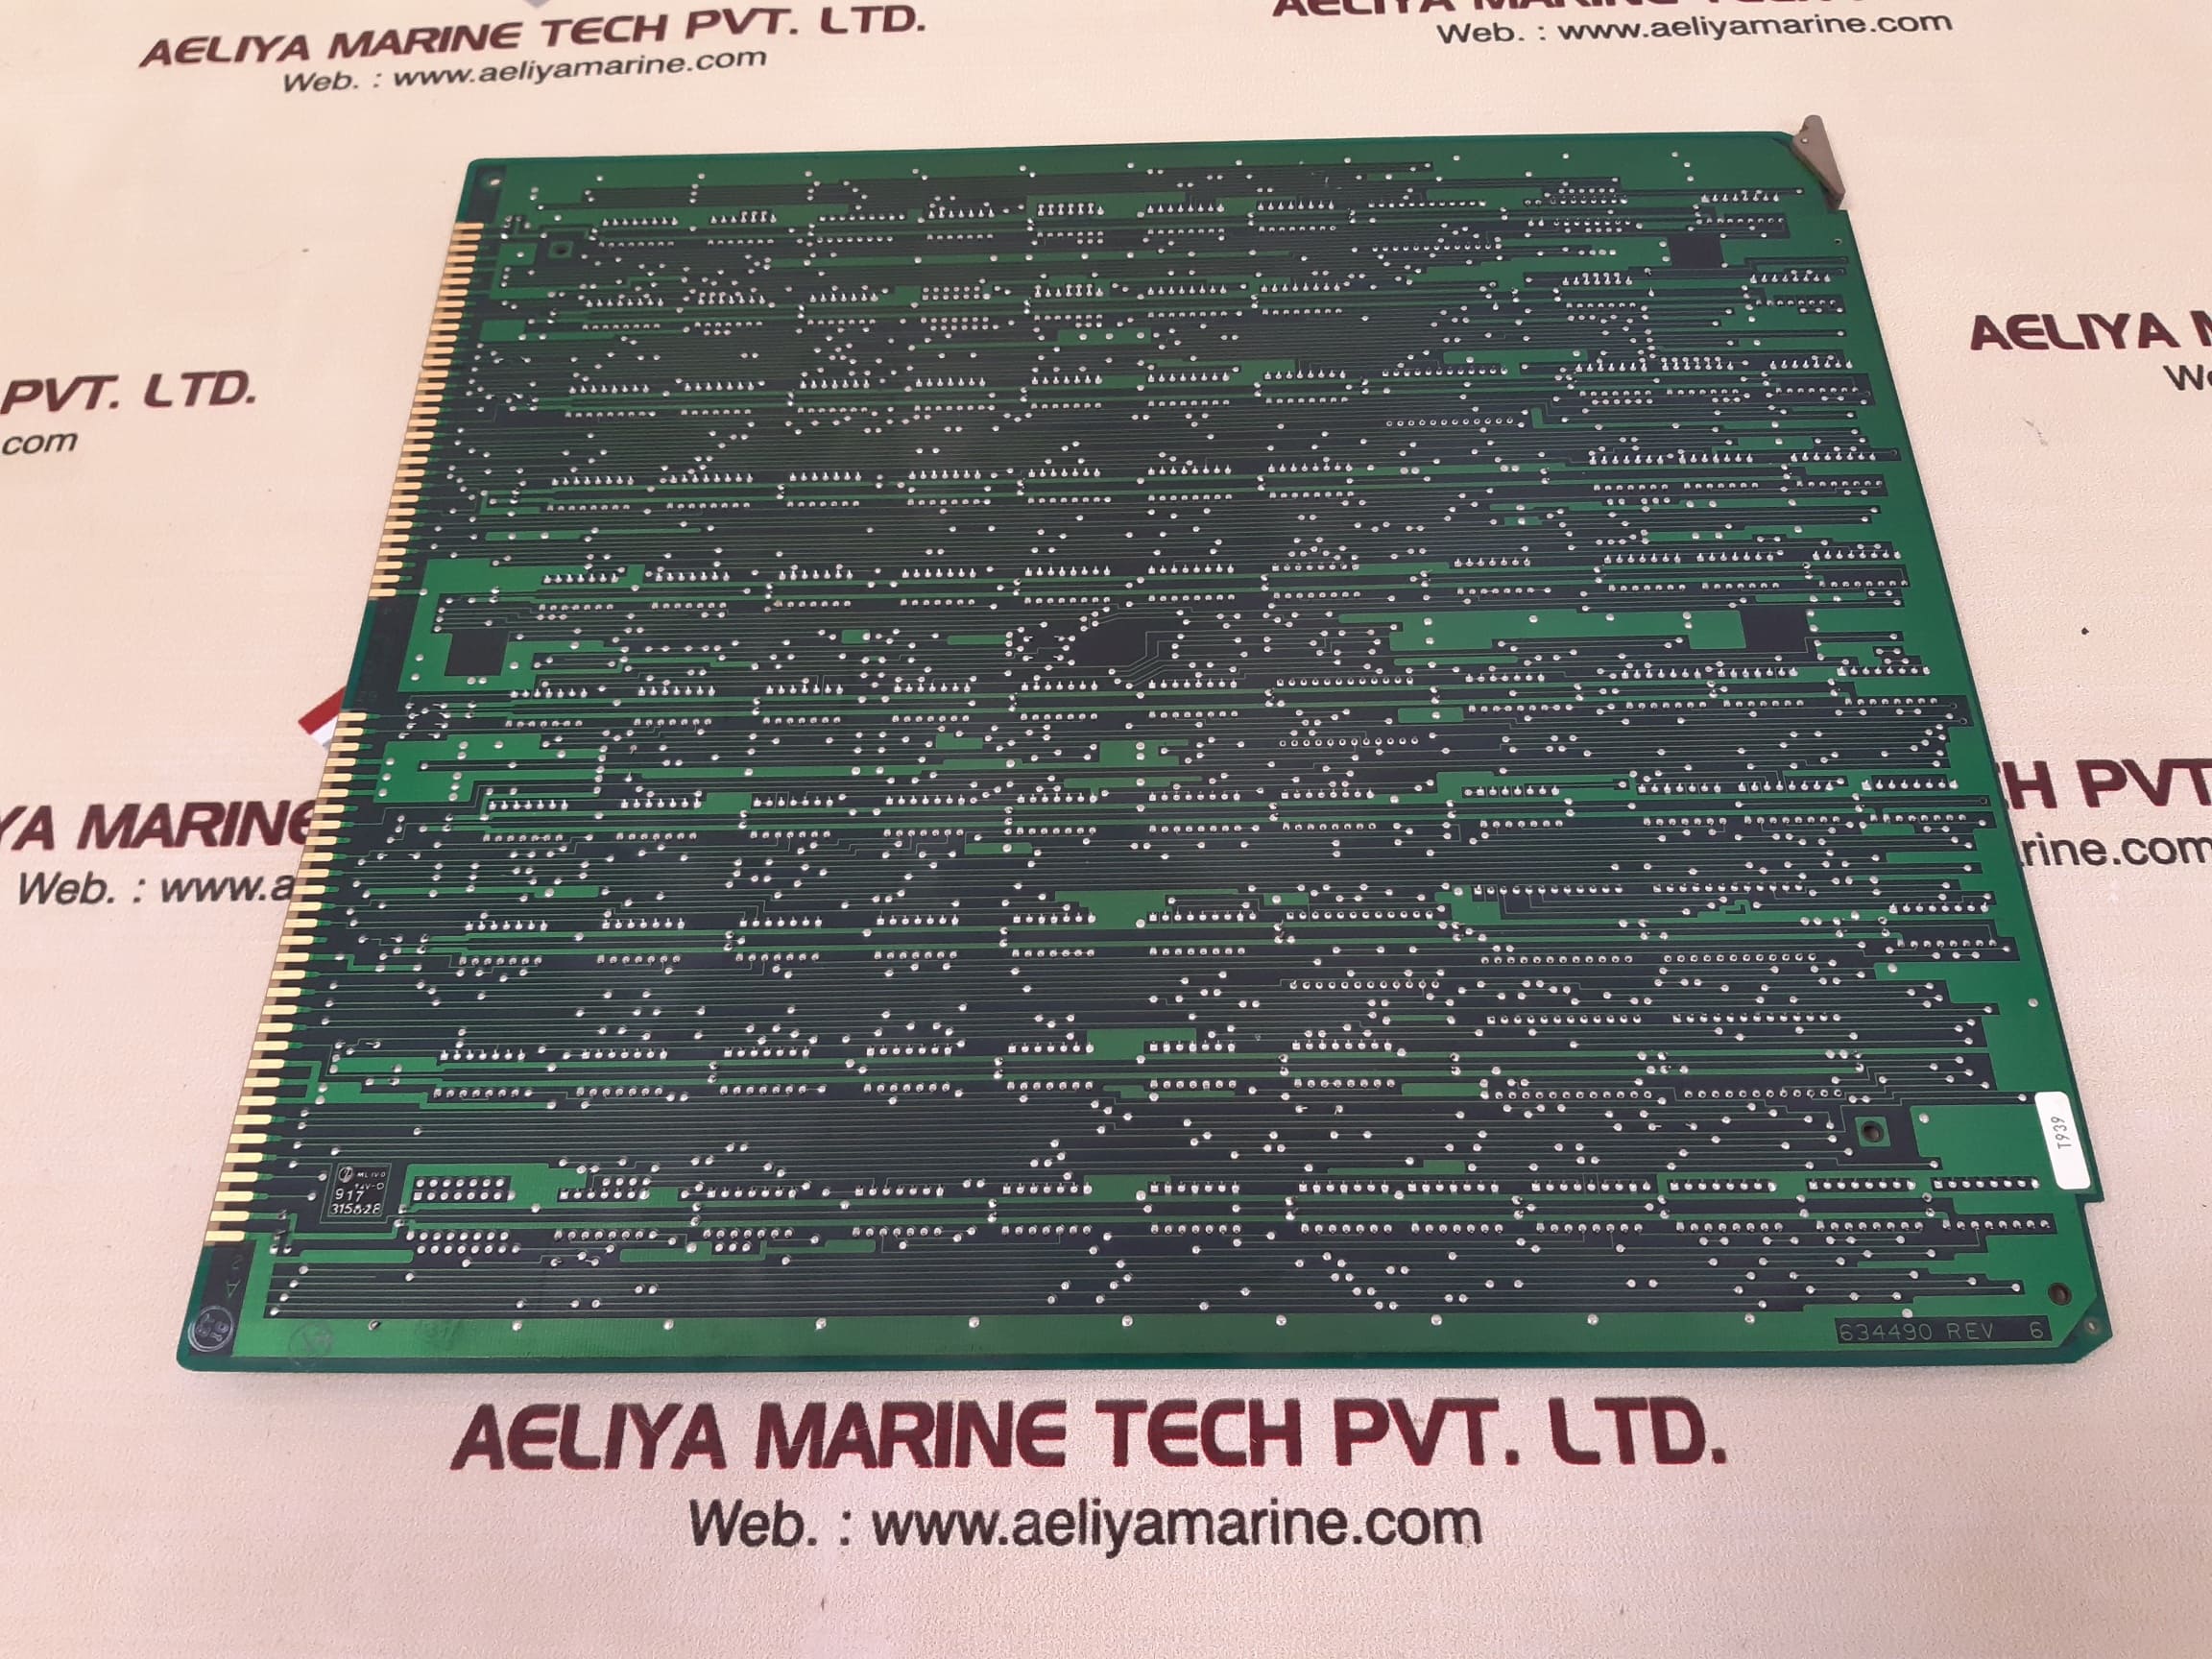 AELIYA MARINE TECH PVT. LTD.
Web. : www.aeliyamarine.com
Web. : www.aeliyamarine.com
AELIYA
PVT. LTD.
com
YA MARINE
Web. : www.a
H PVT
rine.com
T939
917
634490 REV 6
AELIYA MARINE TECH PVT. LTD.
Web. : www.aeliyamarine.com